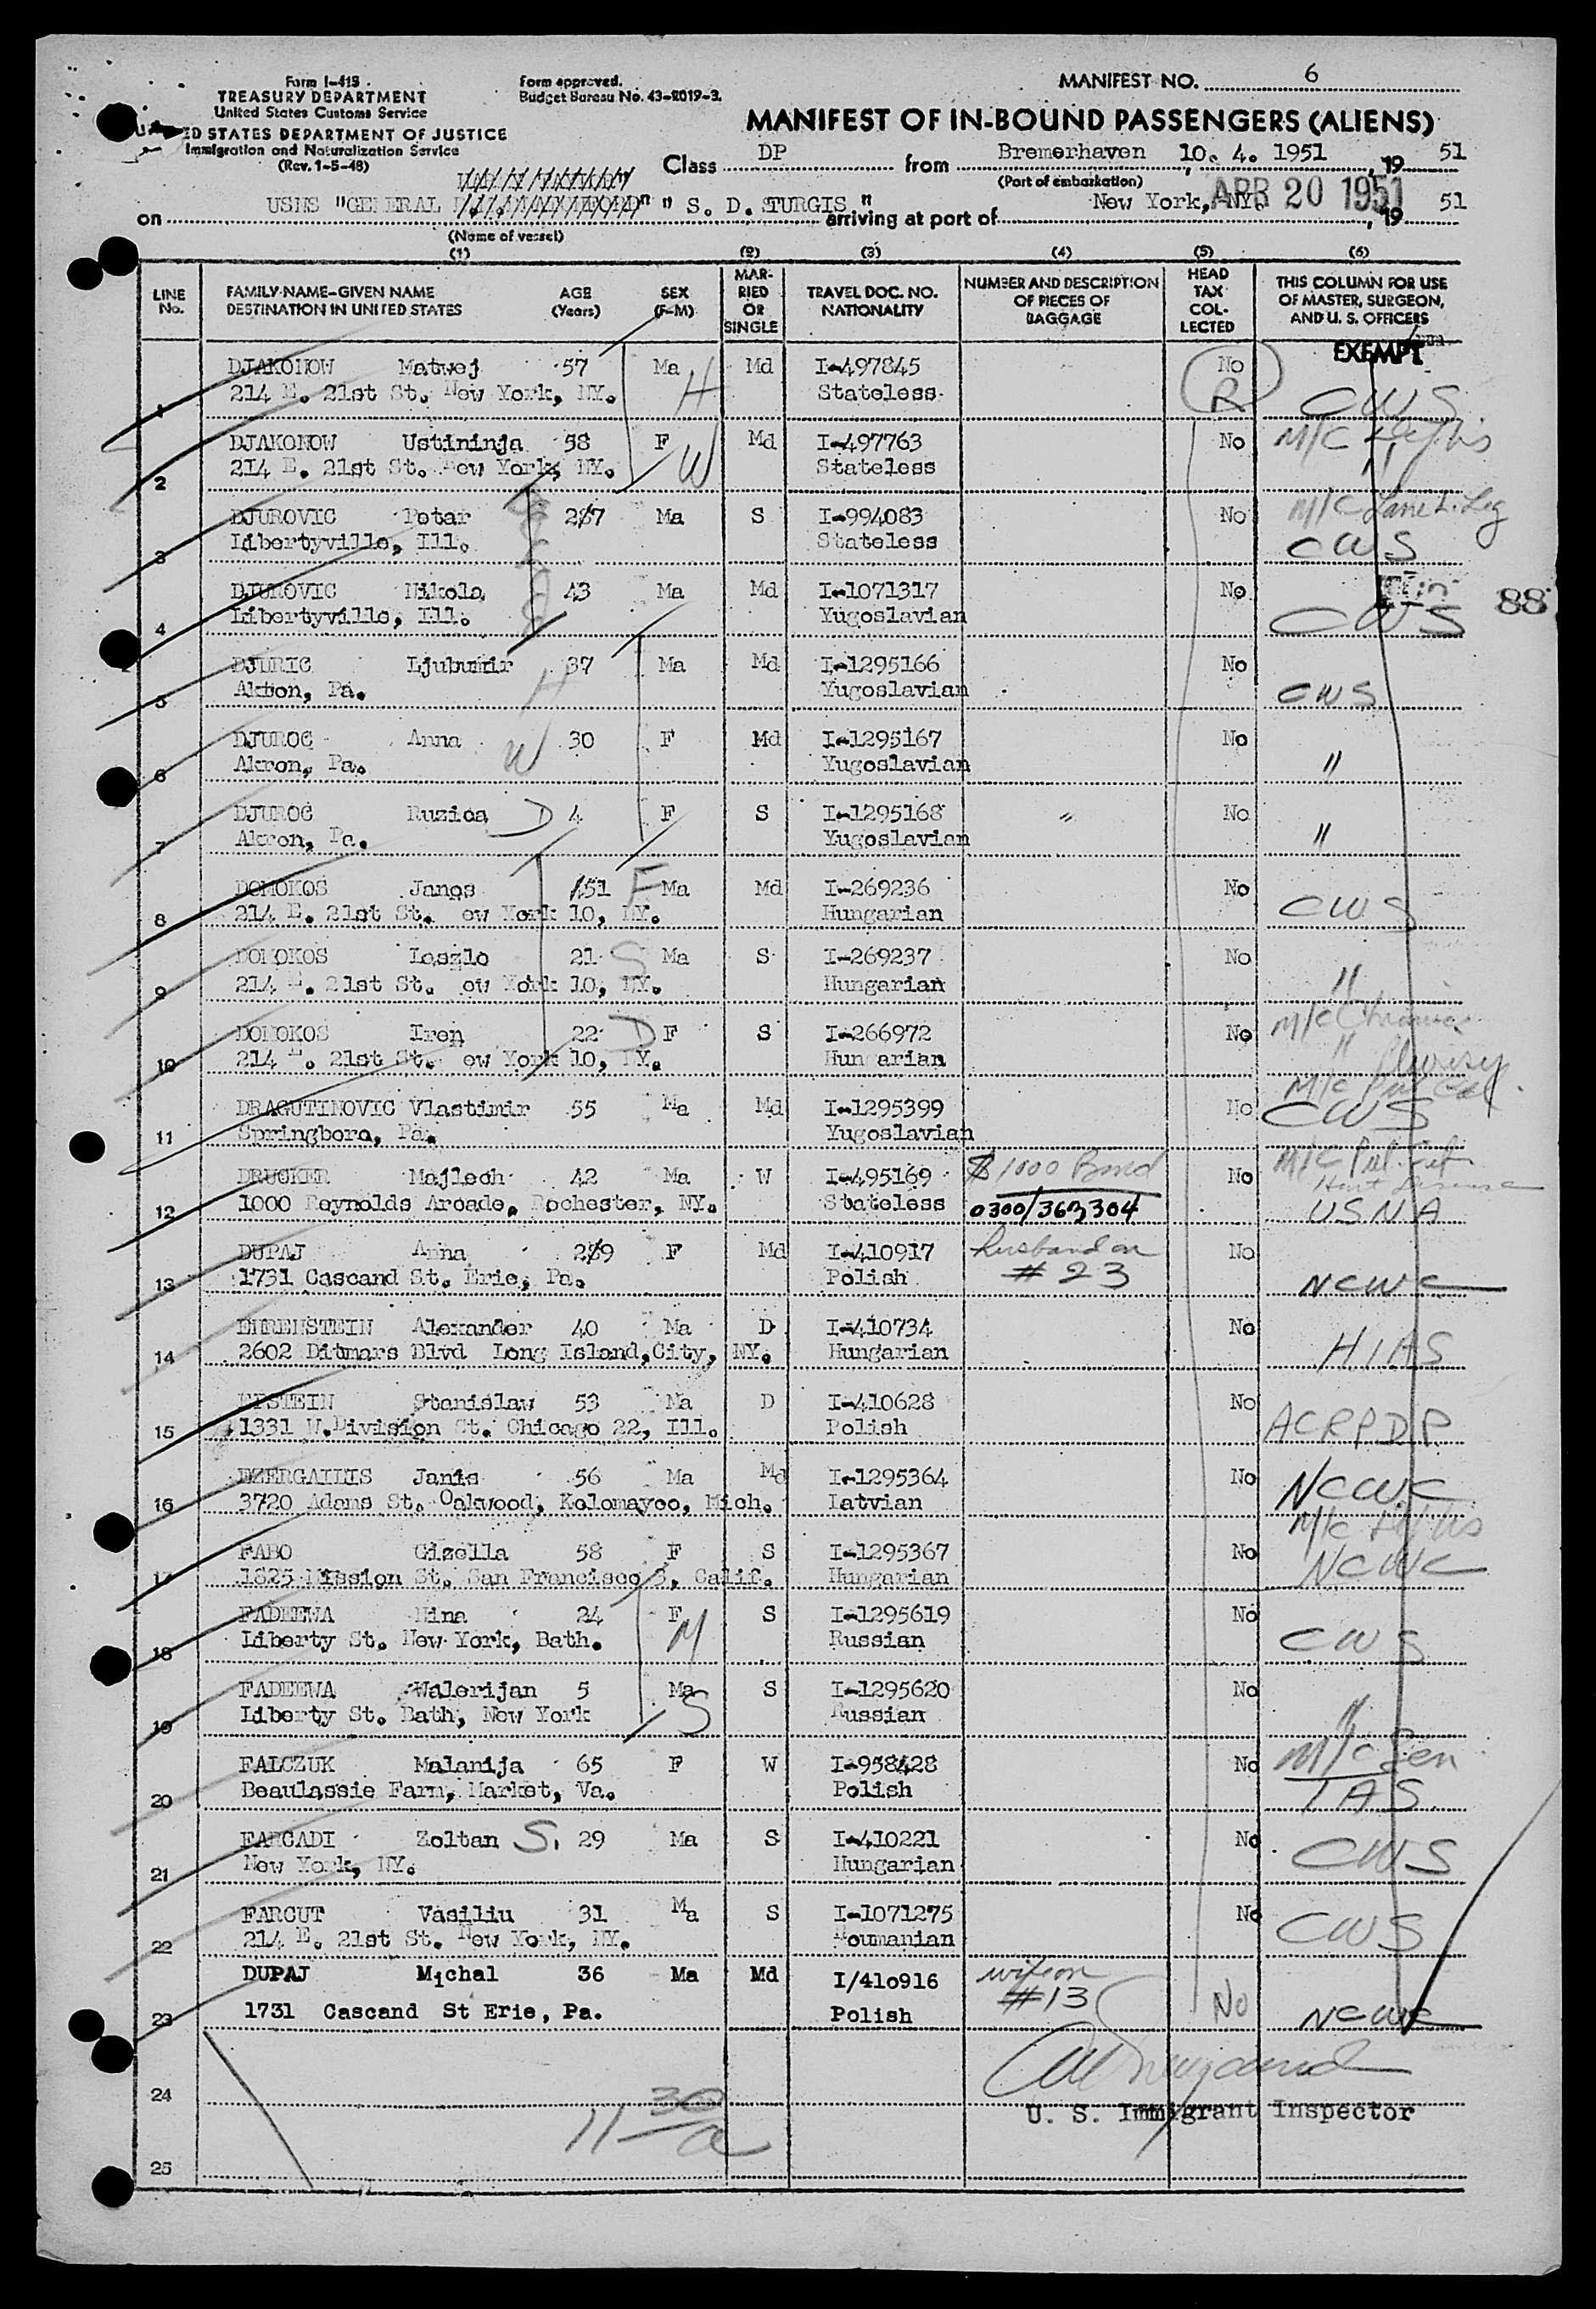 Form I-415
TREASURY DEPARTMENT
United States Customs Service
ED STATES DEPARTMENT OF JUSTICE
Immigration and Naturalization Service
(Rev. 1-5-48)
Form approved.
Budget Bureau No. 43-R019-3.
MANIFEST NO. 6
MANIFEST OF IN-BOUND PASSENGERS (ALIENS)
Class DP from Bremerhaven 10. 4. 1951, 19 51
(Port of embarkation)
on USNS "GENERAL " S. D. STURGIS " arriving at port of New York, NY. APR 20 1951, 19 51
(Name of vessel)
(1) (2) (3) (4) (5) (6)
LINE No. FAMILY NAME-GIVEN NAME DESTINATION IN UNITED STATES AGE (Years) SEX (F-M) MARRIED OR SINGLE TRAVEL DOC. NO. NATIONALITY NUMBER AND DESCRIPTION OF PIECES OF BAGGAGE HEAD TAX COLLECTED THIS COLUMN FOR USE OF MASTER, SURGEON, AND U. S. OFFICERS
EXEMPT
DJAKONOW Matwej 57 Ma Md I-497845 No
1 214 E. 21st St. New York, NY. H Stateless R CWS
DJAKONOW Ustininja 58 F Md I-497763 No M/C
2 214 E. 21st St. New York, NY. W Stateless "
DJUROVIC Petar 287 Ma S I-994083 No M/C Lame L. Leg
3 Libertyville, Ill. Stateless CWS
DJUROVIC Nikola 43 Ma Md I-1071317 No 88
4 Libertyville, Ill. Yugoslavian CWS
DJURIC Ljubumir 37 Ma Md I-1295166 No
5 Akton, Pa. H Yugoslavian CWS
DJUROC Anna 30 F Md I-1295167 No
6 Akron, Pa. W Yugoslavian "
DJUROC Ruzica D 4 F S I-1295168 " No
7 Akron, Pa. Yugoslavian "
DOMOKOS Janos 151 F Ma Md I-269236 No
8 214 E. 21st St. ew York 10, NY. Hungarian CWS
DOMOKOS Laszlo 21 S Ma S I-269237 No
9 214 E. 21st St. ew York 10, NY. Hungarian "
DOMOKOS Iren 22 D F S I-266972 No M/C Chronic
10 214 E. 21st St. ew York 10, NY. Hun arian " Pleurisy
DRAGUTINOVIC Vlastimir 55 Ma Md I-1295399 No M/C Pul Cal
11 Springboro, Pa. Yugoslavian CWS
DRUCKER Majlech 42 Ma W I-495169 $1000 Bond No M/C Pul.
12 1000 Reynolds Arcade, Rochester, NY. Stateless 0300/363304 USNA
DUPAJ Anna 289 F Md I-410917 husband on No
13 1731 Cascand St. Erie, Pa. Polish #23 NCWC
EHRENSTEIN Alexander 40 Ma D I-410734 No
14 2602 Ditmars Blvd Long Island,City, NY. Hungarian HIAS
EPSTEIN Stanislaw 53 Ma D I-410628 No
15 1331 W.Division St. Chicago 22, Ill. Polish ACRPDP
EZERGAILIS Janis 56 Ma Md I-1295364 No
16 3720 Adams St. Oakwood, Kolomayoo, Mich. Latvian NCWC
FABO Gizella 58 F S I-1295367 No M/C
17 1825 Mission St. San Francisco 3, Calif. Hungarian NCWC
FADEEWA Nina 24 F S I-1295619 No
18 Liberty St. New York, Bath. M Russian CWS
FADEEWA Walerijan 5 Ma S I-1295620 No
19 Liberty St. Bath, New York S Russian "
FALCZUK Malanija 65 F W I-958428 No M/C Sen
20 Beaulassie Farm, Market, Va. Polish IAS
FARCADI Zoltan S. 29 Ma S I-410221 No
21 New York, NY. Hungarian CWS
FARCUT Vasiliu 31 Ma S I-1071275 No
22 214 E. 21st St. New York, NY. Roumanian CWS
DUPAJ Michal 36 Ma Md I/410916 wife on
23 1731 Cascand St Erie, Pa. Polish #13 No NCWC
24
U. S. Immigrant Inspector
11 30/a
25